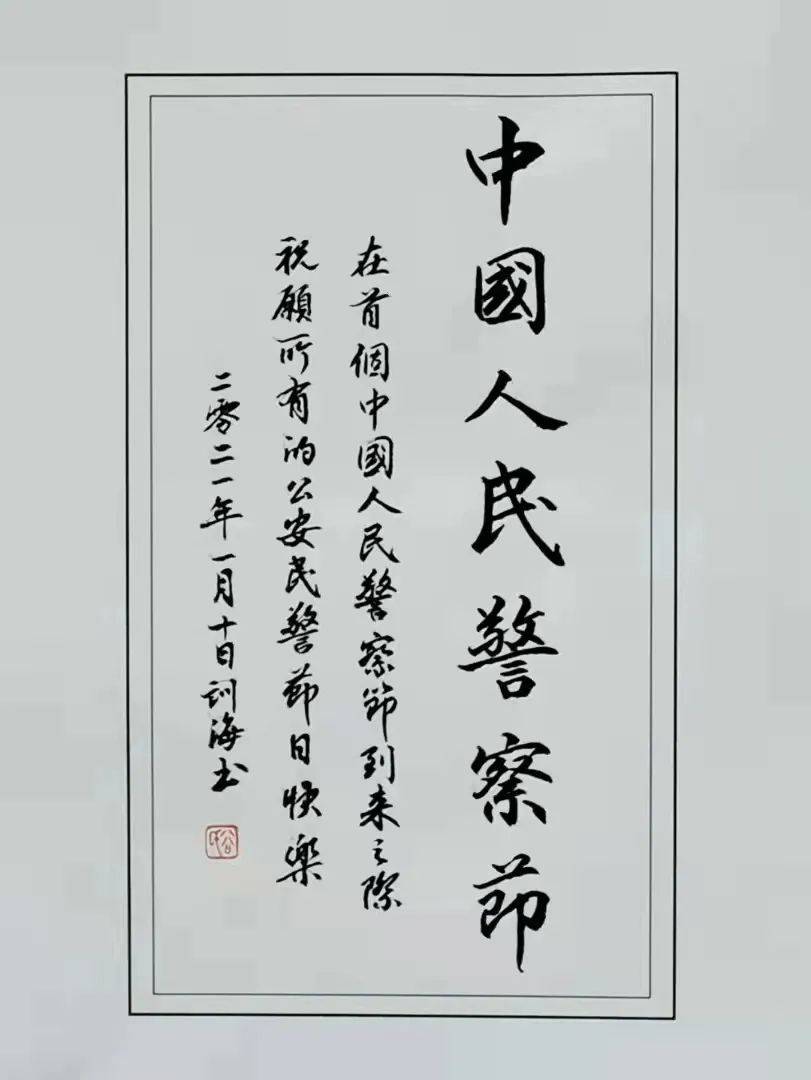 中國人民警察節
在首個中國人民警察節到来之際
祝願所有的公安民警節日快樂
二零二一年一月十日訓海书